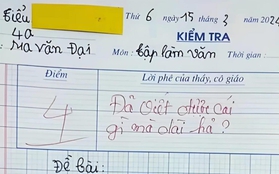 Thứ 6 ngày 15 tháng 3 năm 2024
Tiểu
KIỂM TRA
4a
: Ma Văn Đại Môn : Tập làm văn Thời gian :
Điểm Lời phê của thầy, cô giáo
4 Đã viết được cái
gì mà dài hả ?
Đề bài: